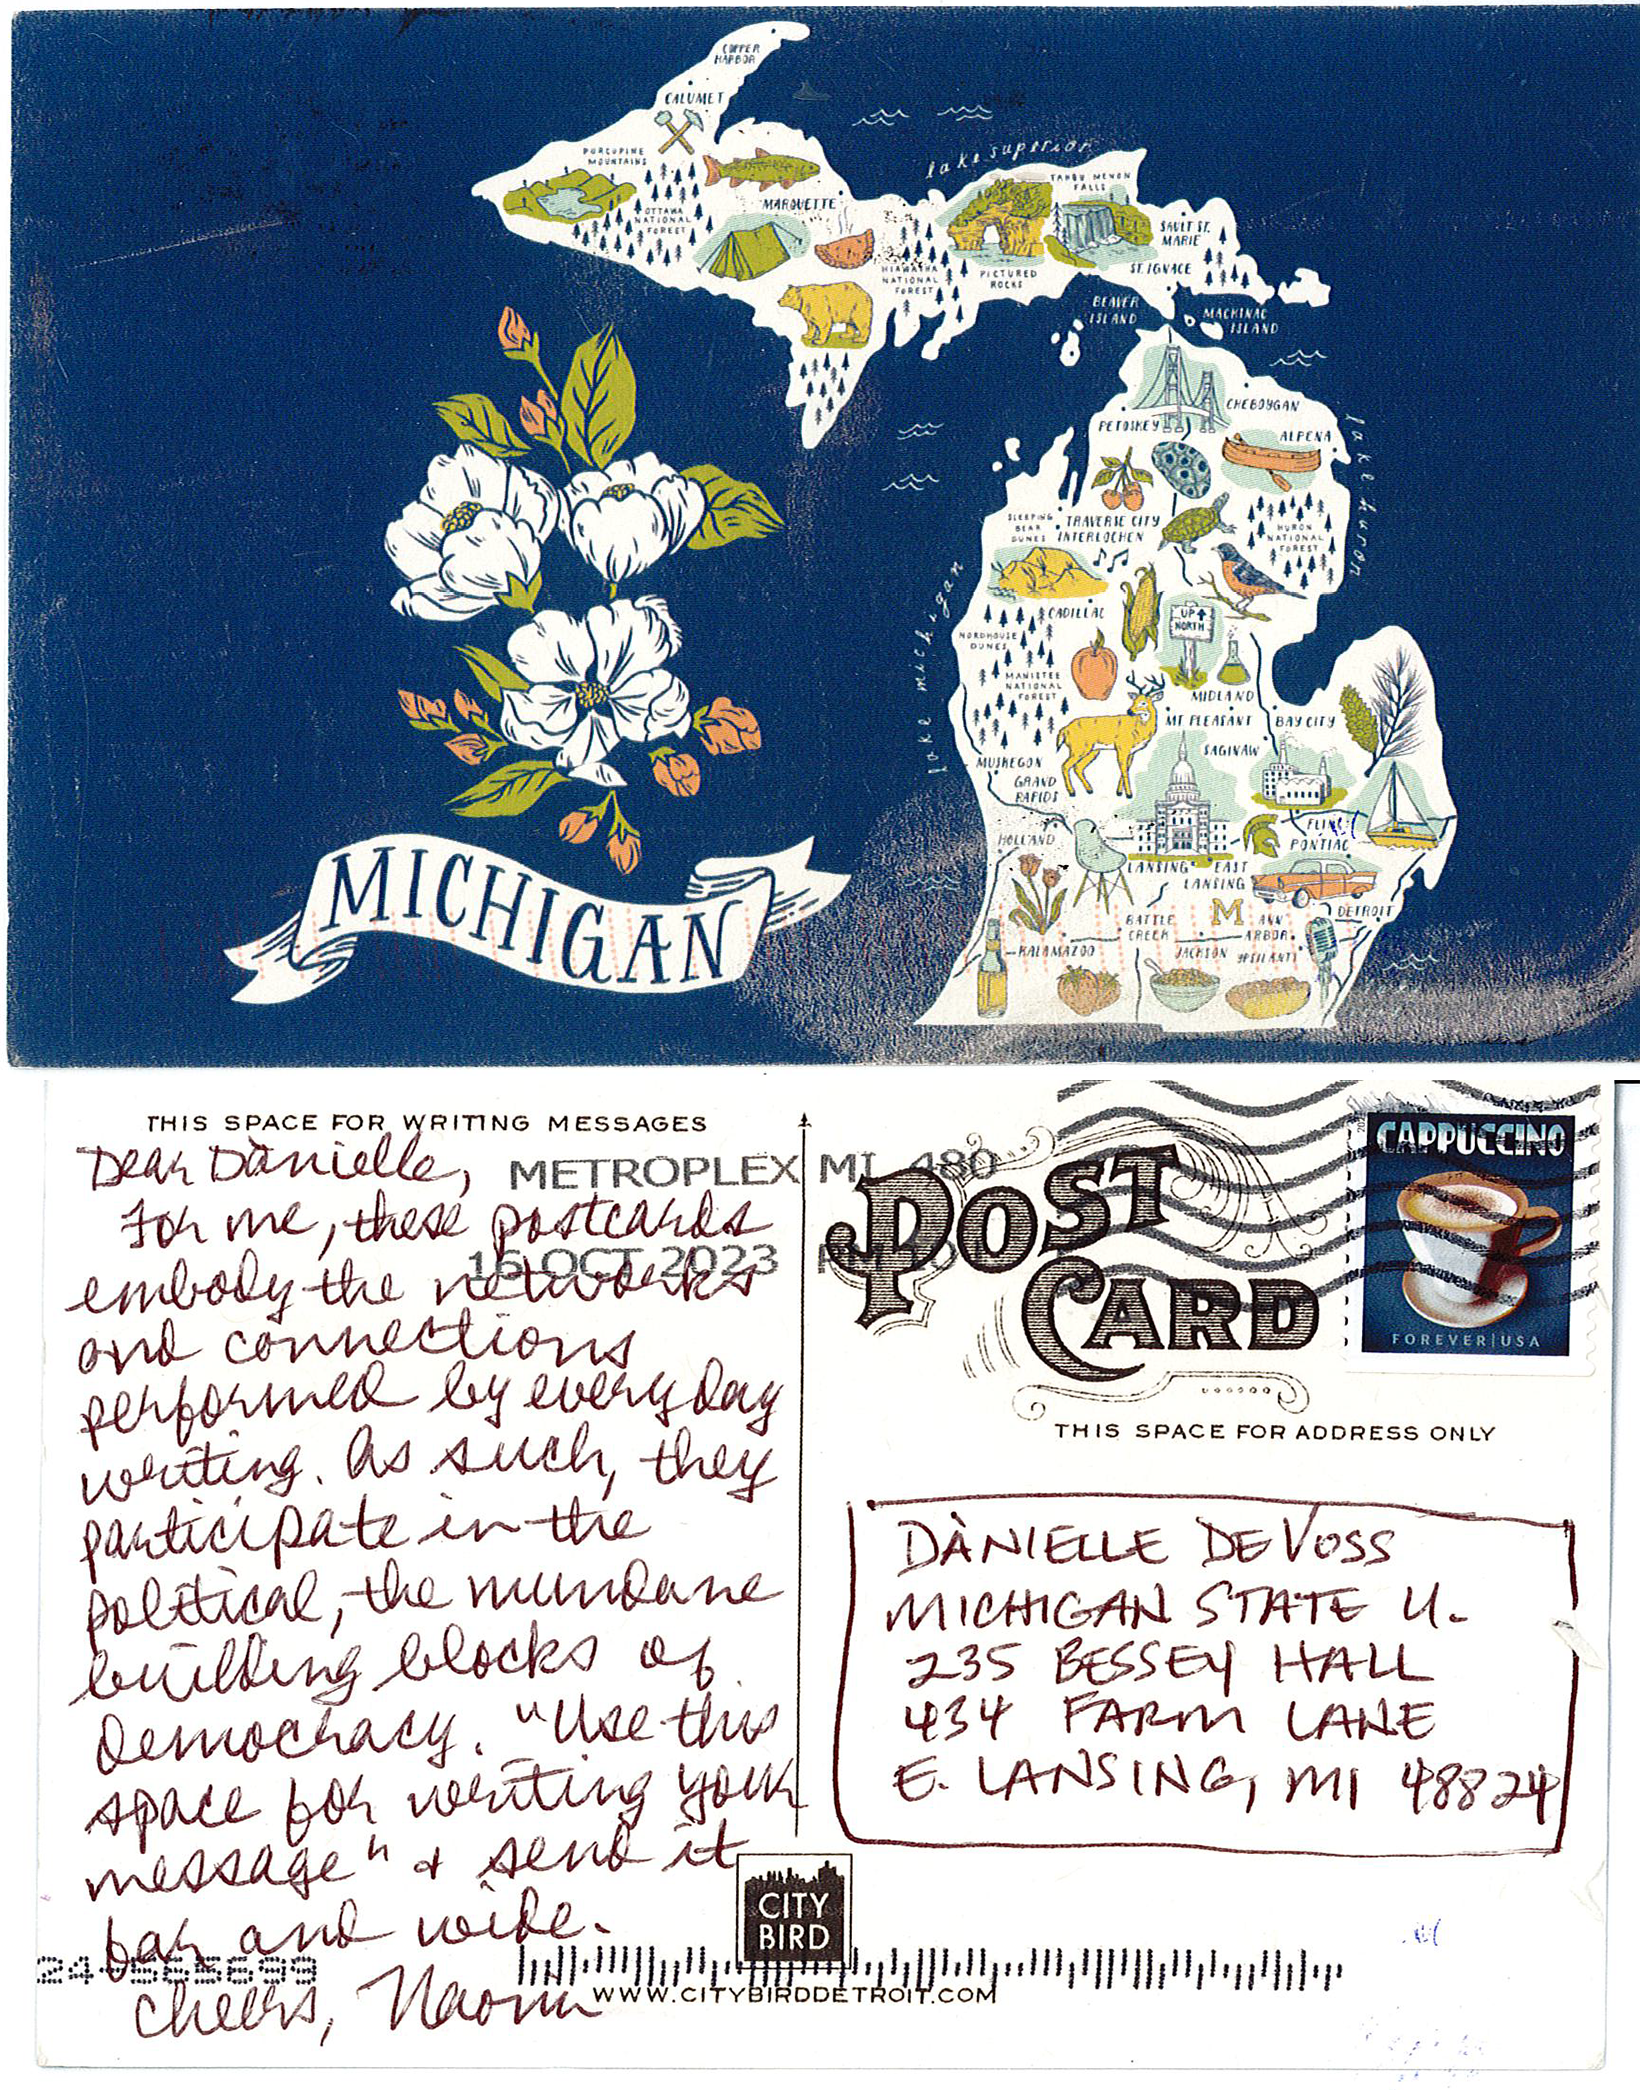 COPPER
HARBOR
CALUMET
PORCUPINE
MOUNTAINS
OTTAWA
NATIONAL
FOREST
MARQUETTE
HIAWATHA
NATIONAL
FOREST
lake superior
PICTURED
ROCKS
TAHQUAMENON
FALLS
SAULT ST.
MARIE
ST. IGNACE
BEAVER
ISLAND
MACKINAC
ISLAND
CHEBOYGAN
PETOSKEY
ALPENA
lake huron
SLEEPING
BEAR
DUNES
TRAVERSE CITY
INTERLOCHEN
HURON
NATIONAL
FOREST
lake michigan
CADILLAC
UP
NORTH
NORDHOUSE
DUNES
MANISTEE
NATIONAL
FOREST
MIDLAND
MT PLEASANT
BAY CITY
SAGINAW
MUSKEGON
GRAND
RAPIDS
FLINT
PONTIAC
HOLLAND
LANSING
EAST
LANSING
DETROIT
BATTLE
CREEK
M
ANN
ARBOR
KALAMAZOO
JACKSON
YPSILANTI
MICHIGAN
THIS SPACE FOR WRITING MESSAGES
METROPLEX MI 480
16 OCT 2023 PM
Dear Dànielle,
For me, these postcards
embody the networks
and connections
performed by everyday
writing. As such, they
participate in the
political, the mundane
building blocks of
democracy. "Use this
space for writing your
message" & send it
far and wide.
Cheers, Naomi
POST
CARD
CAPPUCCINO
FOREVER|USA
THIS SPACE FOR ADDRESS ONLY
DÀNIELLE DEVOSS
MICHIGAN STATE U.
235 BESSEY HALL
434 FARM LANE
E. LANSING, MI 48824
CITY
BIRD
WWW.CITYBIRDDETROIT.COM